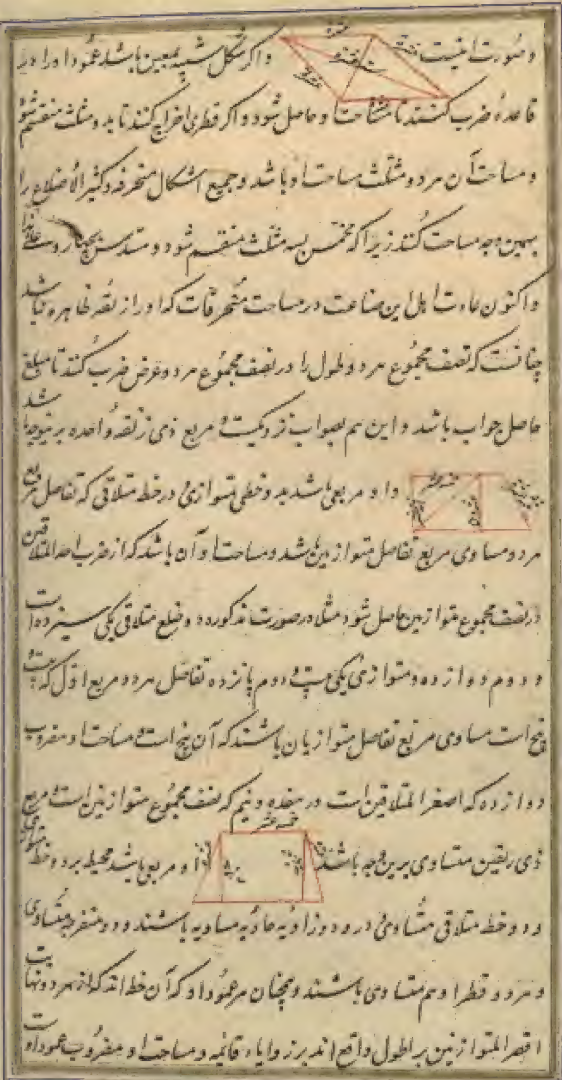 و صورت اینست و اگر شکل شبیه بمعین باشد عمود او را در
قاعده ضرب کنند تا مساحت او حاصل شود و اگر قطری اخراج کنند تا بدو مثلث منقسم شود
و مساحت آن هر دو مثلث مساحت او باشد و جمیع اشکال منحرفه و کثیر الاضلاع را
بهمین وجه مساحت کنند زیرا که مخمس بسه مثلث منقسم شود و مسدس بچهار و
و اکنون عادت اهل این صناعت در مساحت منحرفات که او را زنقه ظاهره نباشد
چنانست که نصف مجموع هر دو طول را در نصف مجموع هر دو عرض ضرب کنند تا مبلغ
حاصل جواب باشد و این هم بصواب نزدیکست مربع ذی زنقه واحده برینوجه باشد
و او مربعی باشد بدو خطی متوازی و دو خط متلاقی که تفاضل مربع
هر دو مساوی مربع تفاضل متوازیین باشد و مساحت او آن باشد که از ضرب احد المتلاقیین
در نصف مجموع متوازیین حاصل شود مثلا در صورت مذکوره دو ضلع متلاقی یکی سیزده است
و دوم دوازده و متوازی یکی بیست و دوم پانزده تفاضل هر دو مربع اول که بیست
پنج است مساوی مربع تفاضل متوازیان باشند که آن پنج است و مساحت او مضروب
دوازده که اصغر المتلاقیین است در هفده و نیم که نصف مجموع متوازیین است و مربع
ذی زنقین متساوی برین وجه باشد و او مربعی باشد محیط برو دو خط متوازی
و دو خط متلاقی متساوی و درو دو زاویه حاده مساویه باشند و دو منفرجه متساوی
و هر دو قطر او هم متساوی باشند و همچنان هر عمود او که آن خط اند که از هر دو نهایت
اقصر المتوازیین بر اطول واقع اند بر زوایاء قائمه و مساحت او مضروب عمود اوست